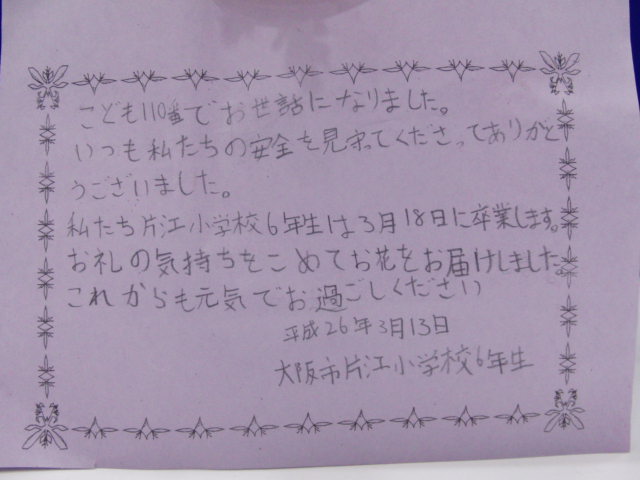 こども110番でお世話になりました。
いつも私たちの安全を見守ってくださってありがと
うございました。
私たち片江小学校6年生は3月18日に卒業します。
お礼の気持ちをこめてお花をお届けしました。
これからも元気でお過ごしください
平成26年3月13日
大阪市片江小学校6年生